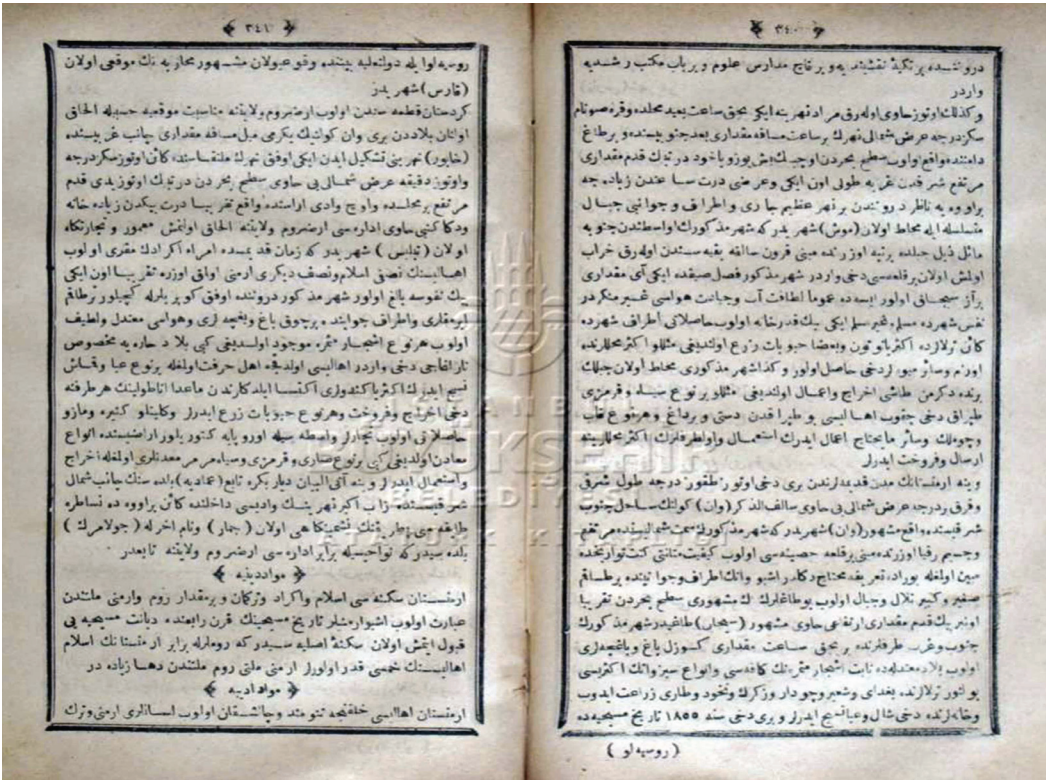 ﴿ ٣٤٠ ﴾
دروننده بر تكيهٔ نقشبنديه و بر قاچ مدارس علوم و بر باب مكتب رشديه
واردر
وكذلك اوتوز حاوى اوله رق مراد نهرينه ايكى بحق ساعت بعيد محلده وقره صو نام
سكز درجه عرض شمالى نهرك بر ساعت مسافه مقدارى بعد جنوبيسنده و بر طاغ
دامننده واقع اولوب سطح بحردن اوچبك بش يوز ياخود درت بك قدم مقدارى
مرتفع شرقدن غربه طولى اون ايكى وعرضى درت ساعتدن زياده جه
بر اووه يه ناظر دروننده بر نهر عظيم جارى و اطراف و جوانبى جبال
متسلسله ايله محاط اولان (موش) شهريدر كه شهر مذكورك اواسطندن جنوبه
مائل ذيل جبلده برتپه اوزرنده مبنى قرون سالفه بقيه سندن اوله رق خراب
اولمش اولان بر قلعه سى دخى واردر شهر مذكور فصل صيفده ايكى آى مقدارى
بر آز سيجاق اولور ايسه ده عموما لطافت آب و جيادت هواسى غير منكردر
نفس شهرده مسلم غير مسلم ايكى بيك قدر خانه اولوب حاصلاتى اطراف شهرده
كائن ترلالرده اكثريا توتون وبعضا حبوبات زرع اولنديغى مثللو اكثر محللرنده
اوزم وسائر ميوه لر دخى حاصل اولور و كذا شهر مذكورى محاط اولان جبلك
برنده دكرمن طاشى اخراج واعمال اولنديغى مثللو بر نوع سياه و قرمزى
طپراق دخى چيقوب اهاليسى بو طپراقدن دستى وبرداغ وهر نوع قاب
وچوملك وسائر مايحتاج اعمال ايدرك استعمال واول طرفلرك اكثر محللرينه
ارسال وفروخت ايدرلر
وينه ارمنستانك مدن قديمه لرندن برى دخى اوتوز طقوز درجه طول شرقى
وقرق بردرجه عرض شمالى يى حاوى سالف الذكر (وان) كولنك ساحل جنوب
شرقيسنده واقع مشهور (وان) شهريدر كه شهر مذكورك سمت شماليسنده مرتفع
وجسيم برقيا اوزرنده مبنى بر قلعه حصينه سى اولوب كيفيت متانتى كتب تواريخده
مبين اولمغله بوراده تعريفه محتاج دكلدر اشبو وانك اطراف وجوانبنده بر طاقم
صغير وكبير تلال وجبال اولوب بو طاغلرك اك مشهورى سطح بحردن تقريبا
اون بر بيك قدم مقدارى ارتفاعى حاوى مشهور (سيحان) طاغيدر شهر مذكورك
جنوب وغرب طرفلرنده بر بحق ساعت مقدارى كوزل باغ وباغچه لرى
اولوب بلاد معتدله ده نابت اشجار مثمره نك كافه سى وانواع سبزواتك اكثريسى
بولنور ترلالرنده بغداى وشعير وچودار وزكرك ونخود وطارى زراعت ايدوب
وخانه لرنده دخى شال وعبا نسج ايدرلر وبرى دخى سنه ١٨٥٥ تاريخ مسيحيه ده
( روسيه لو )
﴿ ٣٤١ ﴾
روسيه لوايله دولتعليه بيننده وقوعبولان مشهور محاربه نك موقعى اولان
(قارس) شهريدر
كردستان قطعه سندن اولوب ارضروم ولايتنه مناسبت موقعيه حسبيله الحاق
اولنان بلاددن برى وان كولنك يكرمى ميل مسافه مقدارى جانب غربيسنده
(خابور) نهرينى تشكيل ايدن ايكى اوفق نهرك ملتقاسنده كائن اوتوز سكز درجه
واوتوز دقيقه عرض شمالى يى حاوى سطح بحردن درت بك اوتوز يدى قدم
مرتفع بر محلده واوچ وادى اراسنده واقع تقريبا درت بيكدن زياده خانه
ودكاكينى حاوى اداره سى ارضروم ولايتنه الحاق اولنمش معمور و تجارتكاه
اولان (بتليس) شهريدر كه زمان قديمده امراء اكرادك مقرى اولوب
اهاليسنك نصفى اسلام ونصف ديكرى ارمنى اولق اوزره تقريبا اون ايكى
بيك نفوسه بالغ اولور شهر مذكور دروننده اوفق كوپريلرله كچيلور بر طاقم
ايرمقلرى واطراف جوابنده بر چوق باغ وبغچه لرى وهواسى معتدل ولطيف
اولوب هر نوع اشجار مثمره موجود اولديغى كبى بلاد حاره يه مخصوص
نار اغاجى دخى واردر اهاليسى اولدقچه اهل حرفت اولمغله بر نوع عبا وقماش
نسج ايدرك اكثريا كندولرى اكتسا ايلدكلرندن ماعدا اناطولينك هر طرفنه
دخى اخراج وفروخت وهر نوع حبوبات زرع ايدرلر وكليتلو كتيره ومازو
حاصلاتى اولوب تجارلر واسطه سيله اوروپايه كتوريلور اراضيسنده انواع
معادن اولديغى كبى بر نوع صارى و قرمزى وسياه مرمر معدنلرى اولمغله اخراج
واستعمال ايدرلر وينه آتى البيان دياربكره تابع (عماديه) بلده سنك جانب شمال
شرقيسنده زاب اكبر نهرينك واديسى داخلنده كائن بر اووه ده نساطره
طائفه سى بطريقنك نشيمنكاهى اولان (جمار) ونام اخرله (جولامرك)
بلده سيدر كه نواحيسيله برابر اداره سى ارضروم ولايتنه تابعدر
﴿ مواد دينيه ﴾
ارمنستان سكنه سى اسلام واكراد وتركمان وبر مقدار روم وارمنى ملتندن
عبارت اولوب اشبو ارمنيلر تاريخ مسيحينك قرن رابعنده ديانت مسيحيه يى
قبول ايتمش اولان سكنۀ اصليه سيدر كه روملرله برابر ارمنستانك اسلام
اهاليسنك خمسى قدر اولورلر ارمنى ملتى روم ملتندن دها زياده در
﴿ مواد ادبيه ﴾
ارمنستان اهاليسى خلقتجه تنومند وچالشقان اولوب لسانلرى ارمنى وترك